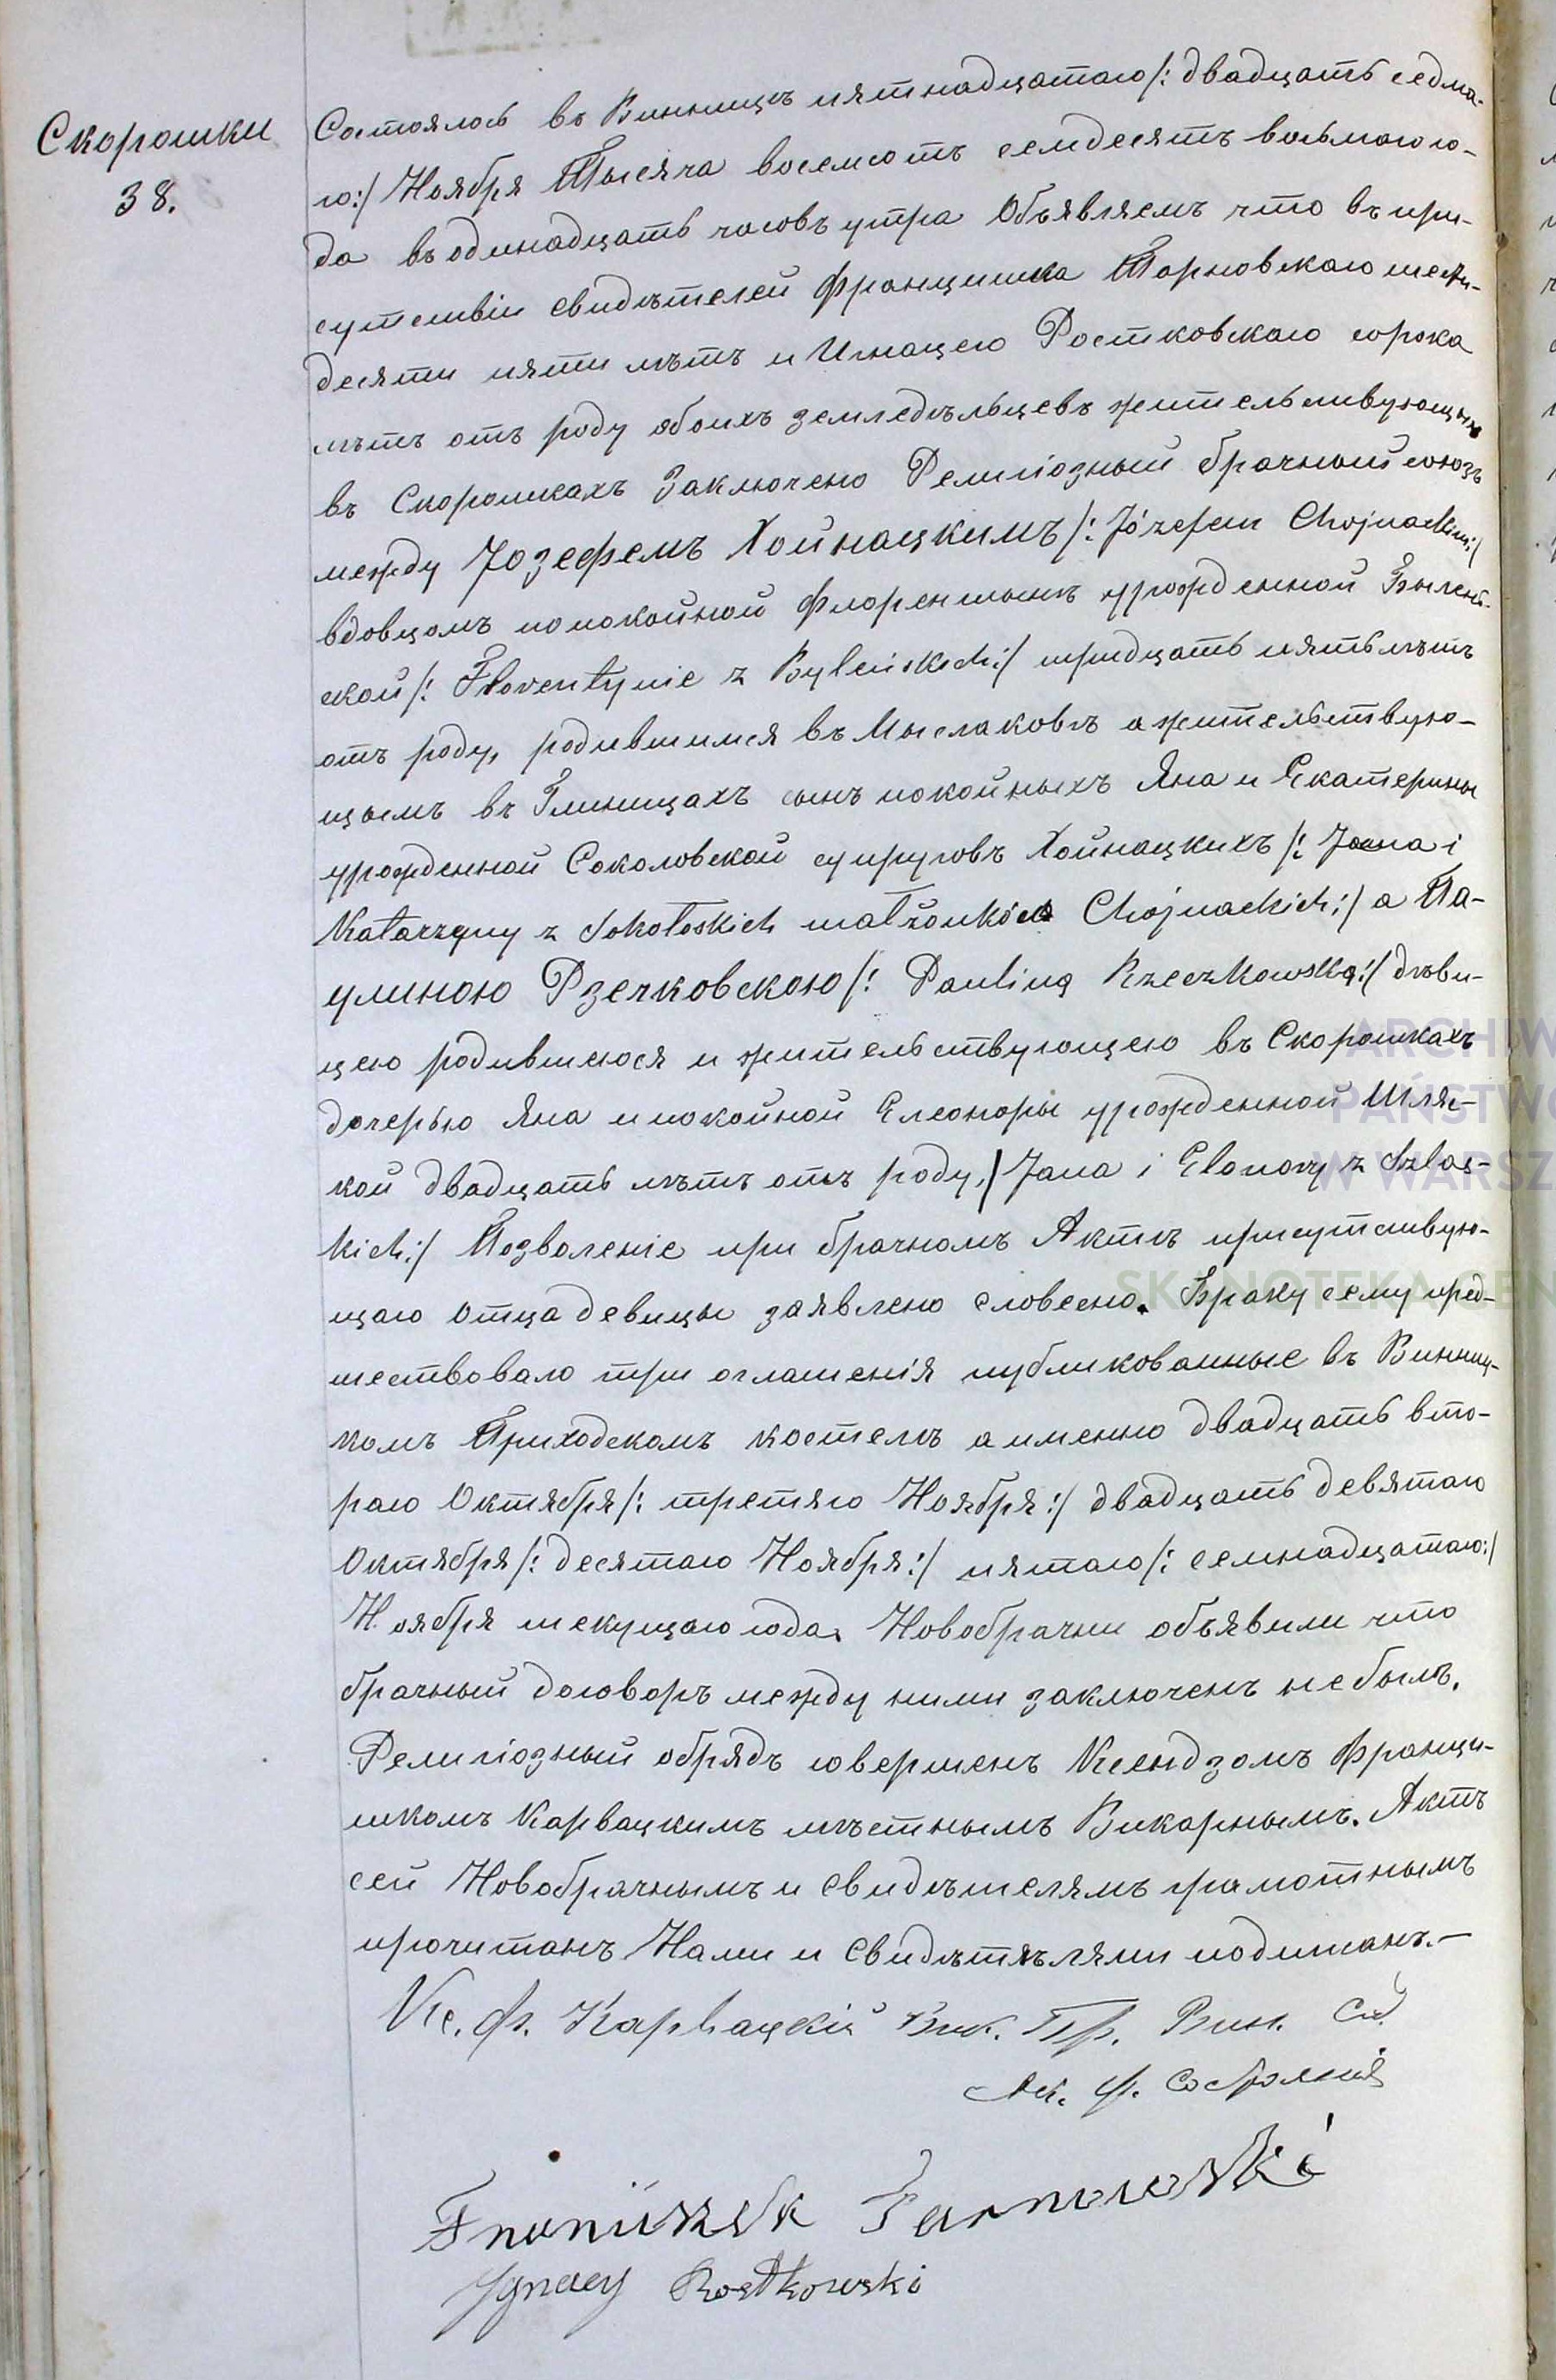 Скорошки
38.
Состоялось въ Винницѣ пятнадцатаго /: двадцать седма-
го :/ Ноября Тысяча восемсотъ семдесятъ восьмаго го-
да въ одинадцать часовъ утра Объявляемъ что въ при-
сутствіи свидѣтелей Францишка Тарновскаго шести-
десяти пяти лѣтъ и Игнацего Ростковскаго сорока
лѣтъ отъ роду обоихъ земледѣльцевъ жительствующихъ
въ Скорошкахъ Заключено Религіозный брачный союзъ
между Іозефемъ Хойнацкимъ /: Józefem Chojnackim :/
вдовцомъ по покойной Флорентынѣ урожденной Былень-
ской /: Florentynie z Byleńskich :/ тридцать пять лѣтъ
отъ роду, родившимся въ Мыслаковѣ а жительствую-
щымъ въ Глиницахъ сынъ покойныхъ Яна и Екатерины
урожденной Соколовской супруговъ Хойнацкихъ /: Jana i
Katarzyny z Sokołoskich małżonków Chojnackich :/ а Па-
улиною Рзечковскою /: Pauliną Rzeczkowską :/ дѣви-
цею родившеюся и жительствующею въ Скорошкахъ
дочерью Яна и покойной Елеоноры урожденной Шляс-
кой двадцать лѣтъ отъ роду, / Jana i Elonory z Szlas-
kich :/ Позволеніе при брачномъ Актѣ присутствую-
щаго отца девицы заявлено словесно. Браку сему пред-
шествовало три оглашенія публикованные въ Винниц-
комъ Приходскомъ костелѣ а именно двадцать вто-
раго Октября /: третяго Ноября :/ двадцать девятаго
Октября /: десятаго Ноября :/ пятаго /: семнадцатаго :/
Ноября текущаго года. Новобрачни объявили что
брачный договоръ между ними заключенъ не былъ.
Религіозный обрядъ совершенъ Ксендзомъ Франци-
шкомъ Карвацкимъ мѣстнымъ Викарнымъ. Актъ
сей Новобрачнымъ и свидѣтелямъ грамотнымъ
прочитанъ Нами и Свидѣтѣлями подписанъ. —
Кс. Ф. Карвацкій Вик. Пр. Вин. Сод.
Ак. Гр. Состоянія
Franciszek Tarnowski
Ignacy Rostkowski
ARCHIW
PAŃSTWO
W WARSZ
SKANOTEKA GEN